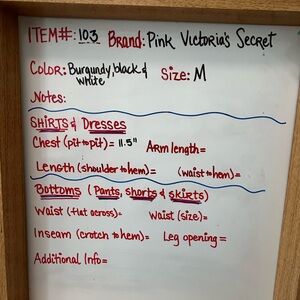 ITEM#: 103 Brand: Pink Victoria's Secret
Color: Burgundy, black & white Size: M
Notes:
SHIRTS & Dresses
Chest (pit to pit) = 11.5" Arm length =
Length (shoulder to hem) = (waist to hem) =
Bottoms (Pants, shorts & skirts)
Waist (flat across) = Waist (size) =
Inseam (crotch to hem) = Leg opening =
Additional Info =